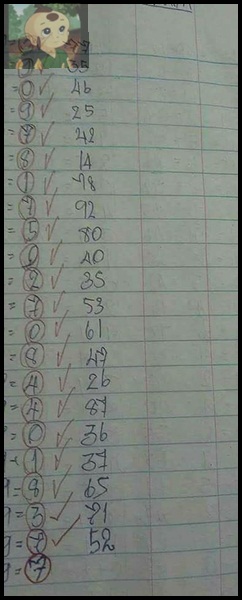 35
= 0 ✓ 46
= 9 ✓ 25
= 7 ✓ 42
= 8 ✓ 14
= 1 ✓ 78
= 7 ✓ 92
= 5 ✓ 80
= 0 ✓ 40
= 2 ✓ 35
= 7 ✓ 53
= 0 ✓ 61
= 8 ✓ 47
= 4 ✓ 26
= 4 ✓ 87
= 0 ✓ 36
1 ✓ 37
= 8 ✓ 65
= 3 ✓ 71
= 7 ✓ 52
= 7